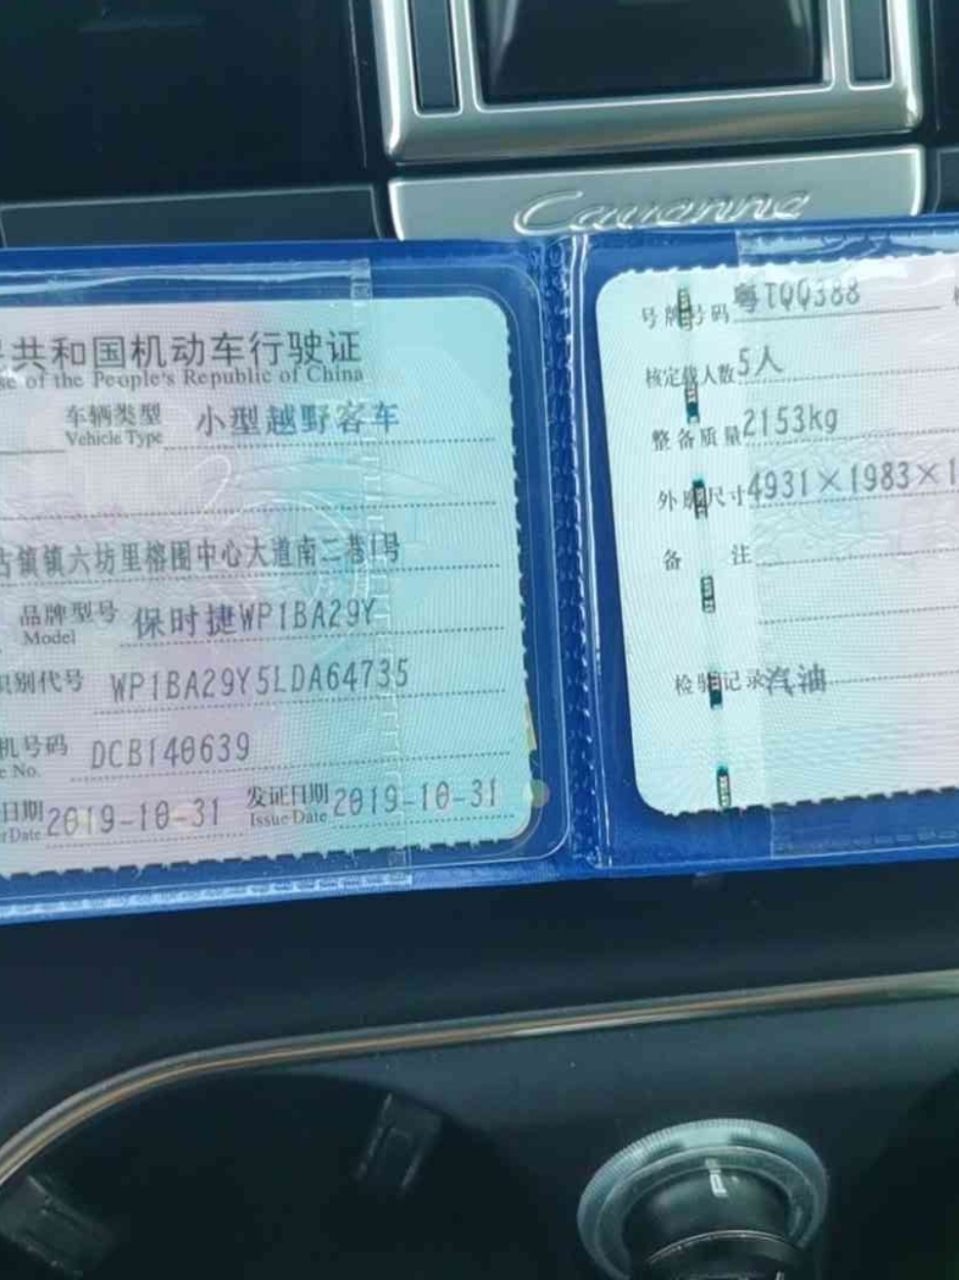 Cayenne
共和国机动车行驶证
se of the People's Republic of China
车辆类型 小型越野客车
Vehicle Type
古镇镇六坊里榕围中心大道南二巷1号
品牌型号 保时捷WP1BA29Y
Model
识别代号 WP1BA29Y5LDA64735
机号码 DCB140639
e No.
日期 2019-10-31 发证日期 2019-10-31
Issue Date
号牌号码 粤TQQ388
核定载人数 5人
整备质量 2153kg
外廓尺寸 4931×1983×1
备 注
检验记录 汽油